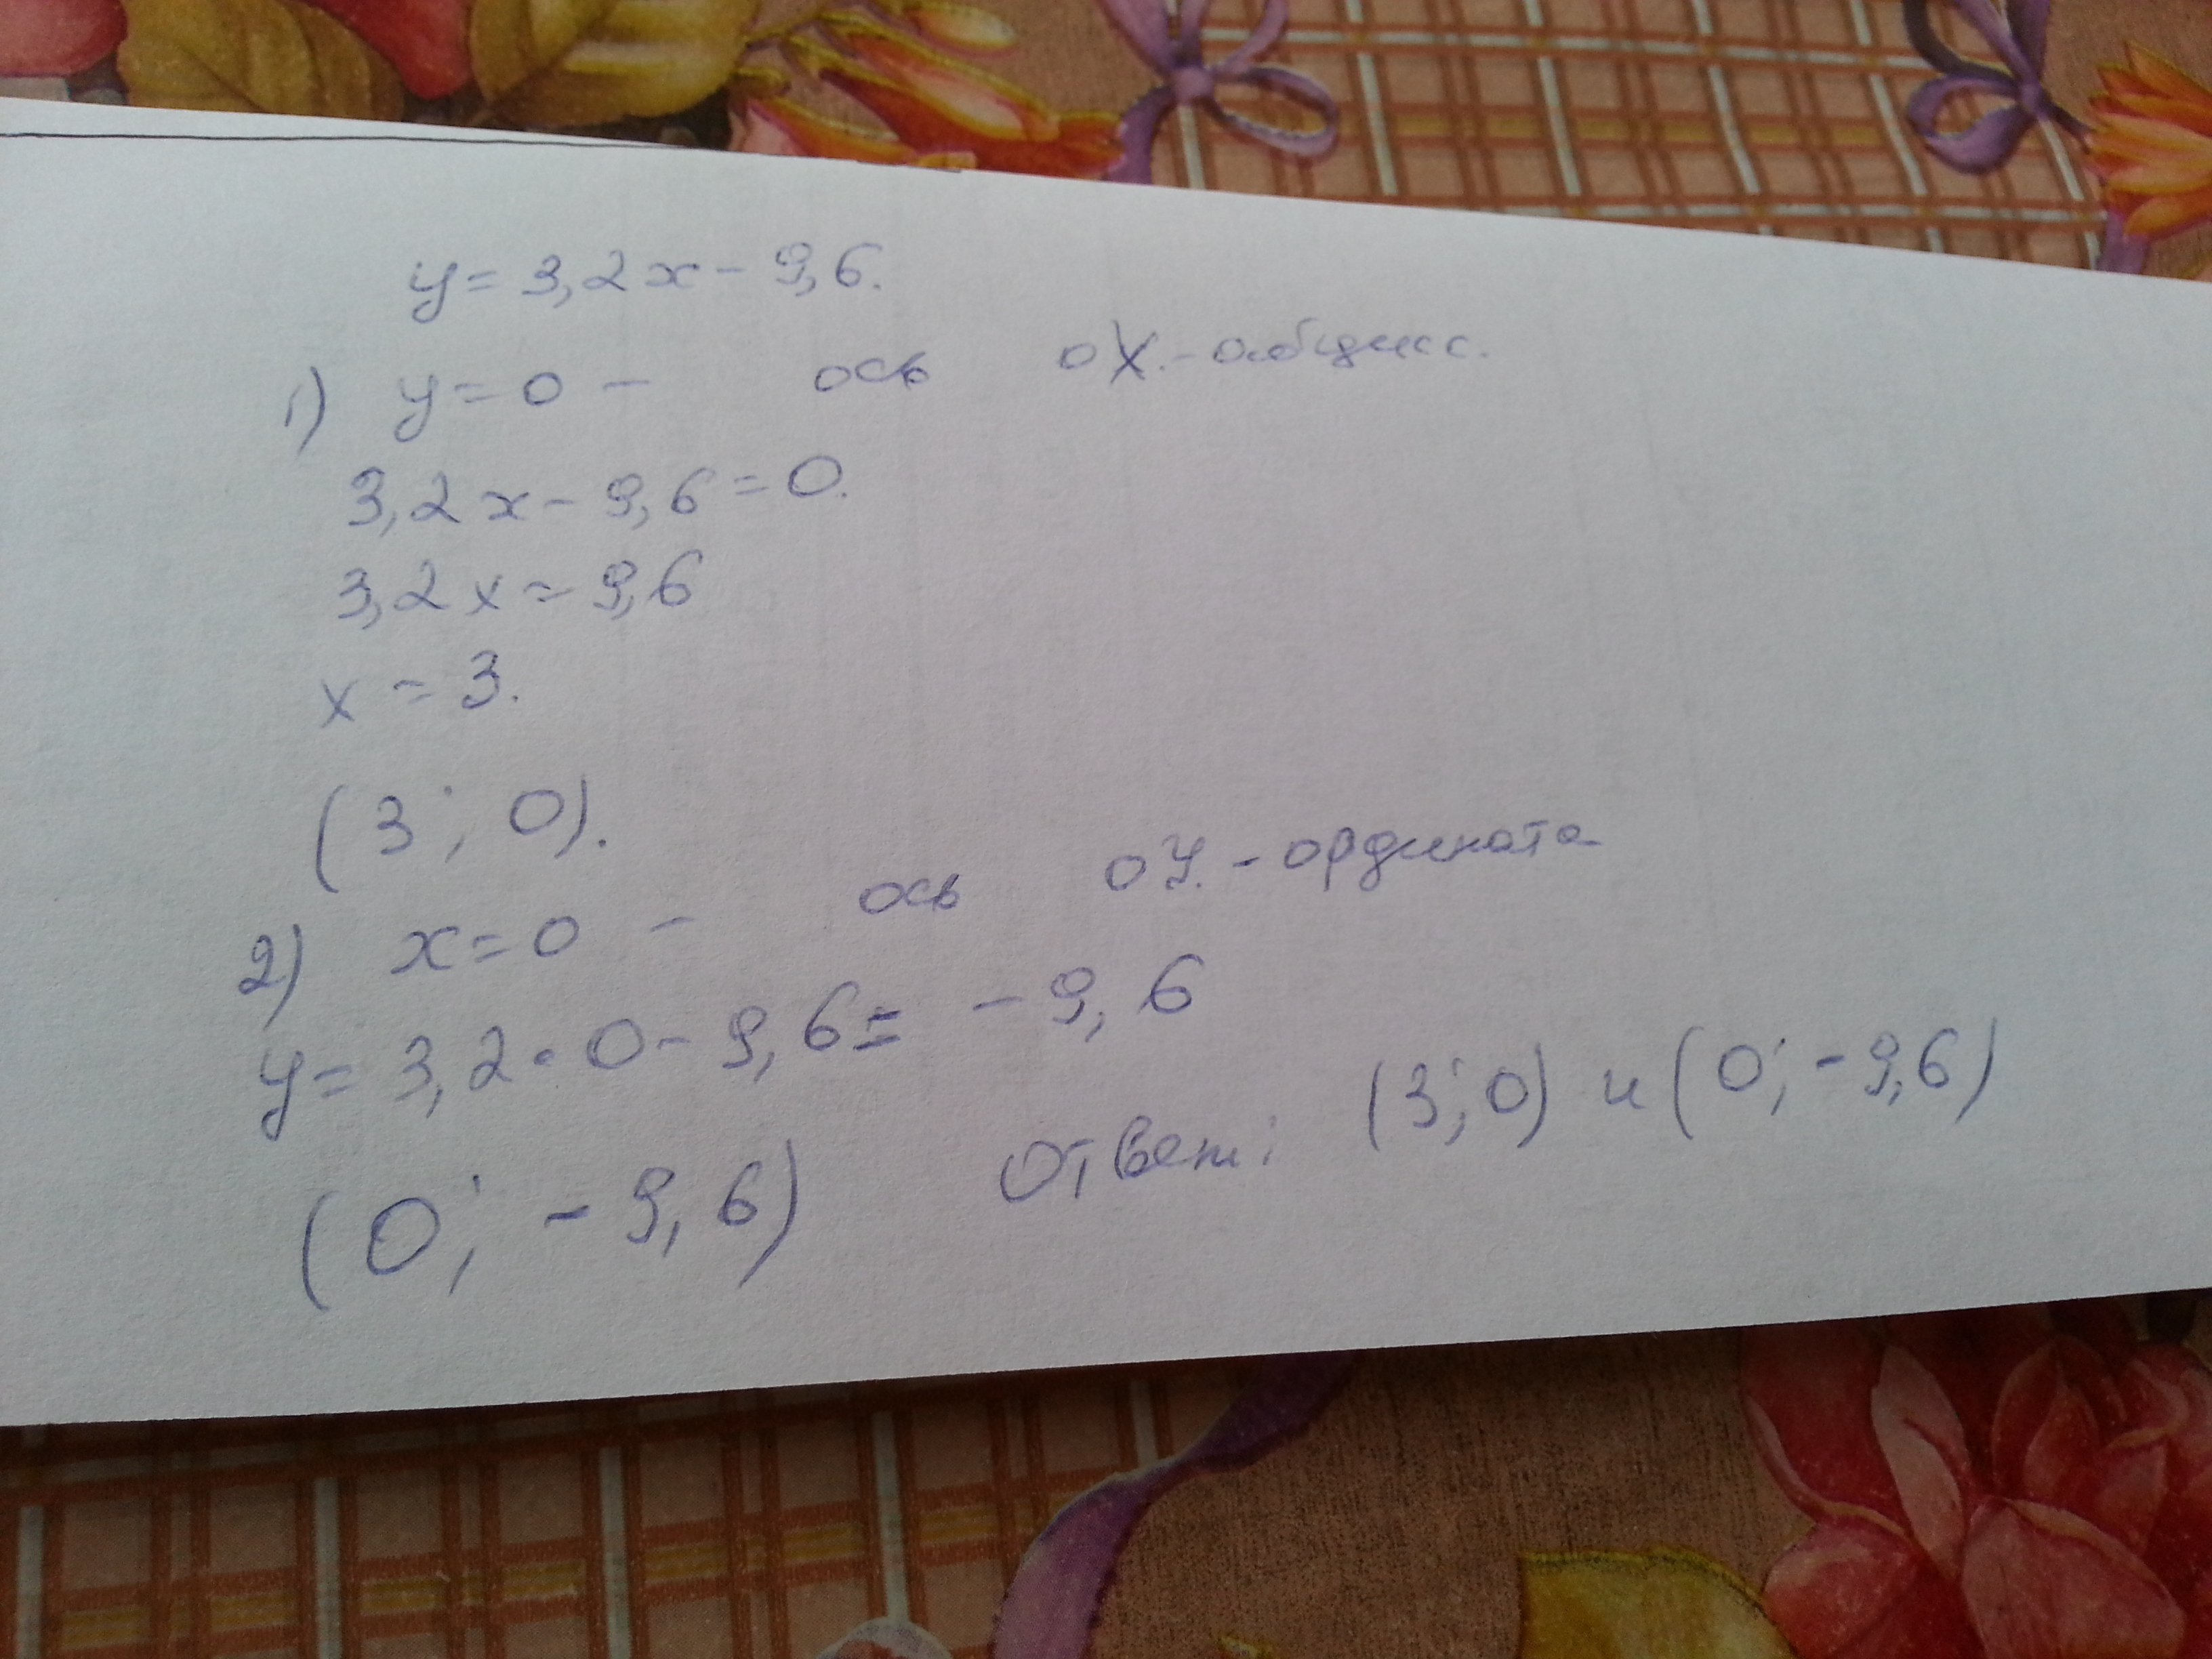 y = 3,2x - 9,6.
1) y = 0 - ось оX. - абцисс.
3,2x - 9,6 = 0.
3,2x = 9,6
x = 3.
(3; 0).
2) x = 0 - ось оУ. - ордината
y = 3,2 · 0 - 9,6 = - 9,6
(0; - 9,6) Ответ: (3; 0) и (0; - 9,6)